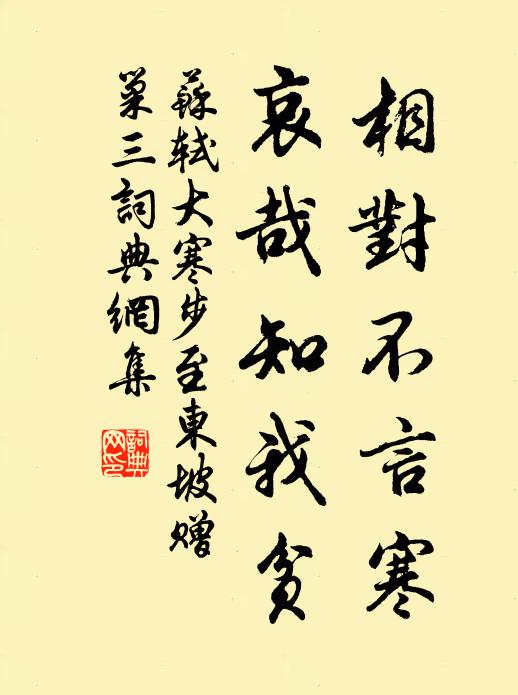 相對不言寒
哀哉知我貧
蘇軾大寒步至東坡贈
巢三詞典網集
詞典網印